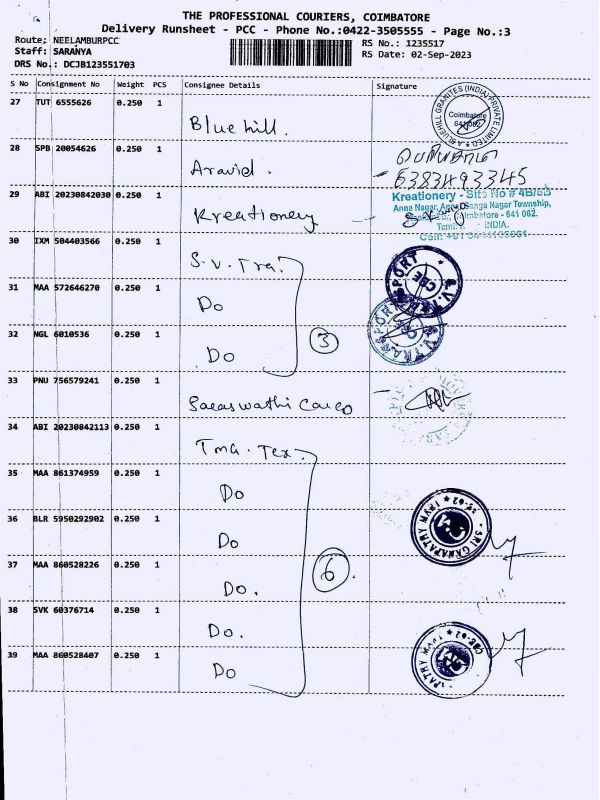 THE PROFESSIONAL COURIERS, COIMBATORE
Delivery Runsheet - PCC - Phone No.:0422-3505555 - Page No.:3
Route: NEELAMBURPCC
Staff: SARANYA
DRS No.: DCJB123551703
RS No.: 1235517
RS Date: 02-Sep-2023
S No Consignment No Weight PCS Consignee Details Signature
27 TUT 6555626 0.250 1 Bluehill.
Coimbatore
641 062
28 SPB 20054626 0.250 1 Aravid.
6383493345
29 ABI 20230842030 0.250 1 Kreationery
Kreationery - Site No # 4B/6B
Anna Nagar, Ganga Nagar Township,
Coimbatore - 641 062.
INDIA.
30 IXM 504403566 0.250 1 S.V. Tra.
31 MAA 572646270 0.250 1 Do
32 NGL 6010536 0.250 1 Do
3
33 PNU 756579241 0.250 1 Saraswathi Cargo
34 ABI 20230842113 0.250 1 Tma. Tex.
35 MAA 861374959 0.250 1 Do
36 BLR 5950292902 0.250 1 Do
37 MAA 860528226 0.250 1 Do.
6
38 SVK 60376714 0.250 1 Do.
39 MAA 860528407 0.250 1 Do